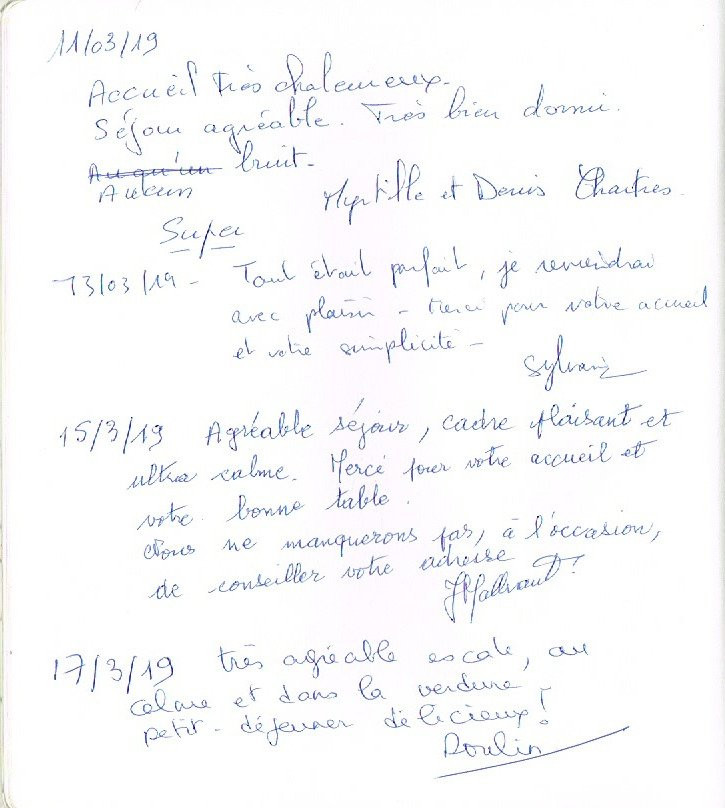 11/03/19
Accueil très chaleureux.
Séjour agréable. Très bien dormi.
Auqu'un bruit.
Aucun
Myrtille et Denis Chartres.
Super
13/03/19 - Tout était parfait, je reviendrai
avec plaisir - merci pour votre accueil
et votre simplicité -
Sylvain
15/3/19 Agréable séjour, cadre plaisant et
ultra calme. Merci pour votre accueil et
votre bonne table.
Nous ne manquerons pas, à l'occasion,
de conseiller votre adresse
17/3/19 très agréable escale, au
calme et dans la verdure -
petit-déjeuner délicieux!
Poulin